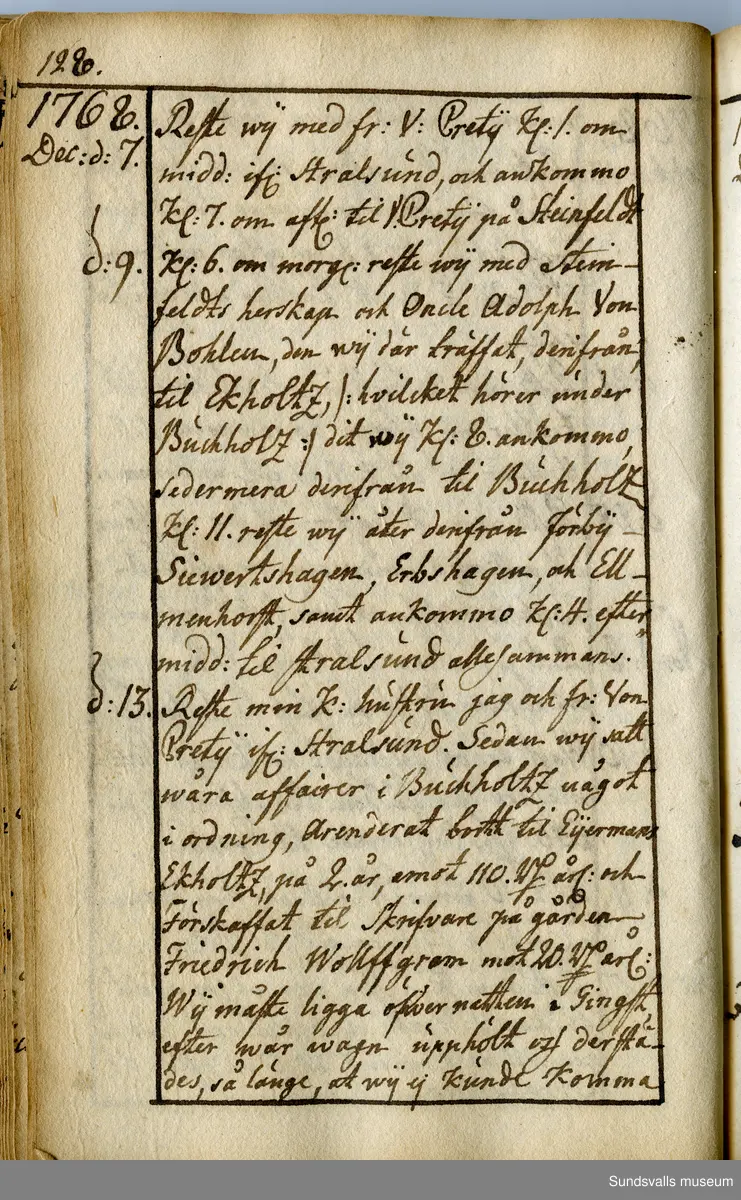 128.
1768. Reste wij med fr: V: Pretÿ Kl: 1. om
Dec: d: 7. midd: ifr: Stralsund, och ankommo
Kl: 7. om aft: til V: Pretÿ på Steinfeldt
d: 9. Kl: 6. om morg: reste wÿ med Stein-
feldts herskap och Oncle Adolph Von
Bohlen, den wÿ där träffat, derifrån
til Ekholtz, /: hvilcket hörer under
Buchholz :/ dit wÿ Kl: 8. ankommo,
sedermera derifrån til Buchholtz
Kl: 11. reste wÿ åter derifrån förbÿ
Siewertshagen, Erbshagen, och Ell-
menhorst, samt ankommo Kl: 4. efter
midd: til Stralsund allesammans.
d: 13. Reste min K: hustru jag och fr: Von
Pretÿ ifr: Stralsund. Sedan wÿ satt
wåra affairer i Buchholtz något
i ordning, Arenderat bortt til Eÿermans
Ekholtz, på 2. år, emot 110. årl: och
Förskaffat til Skrifvare på gården
Friedrich Wollffgram mot 20. årl:
Wÿ måste ligga öfwer natten i Gingst,
efter wår wagn uppholt oss derstä-
des, så länge, at wÿ ej kunde komma
Sundsvalls museum